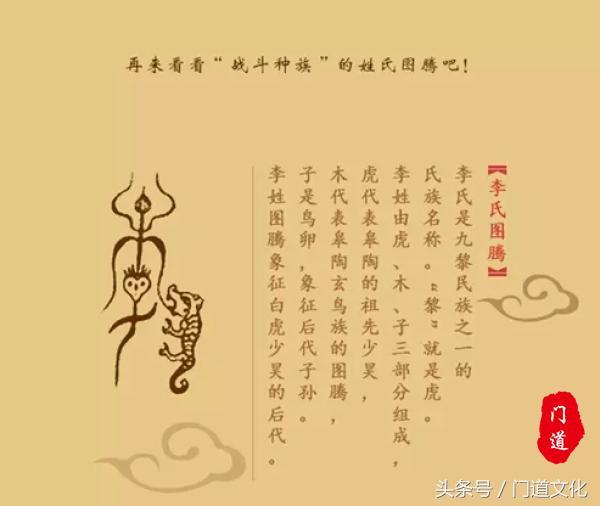 再来看看“战斗种族”的姓氏图腾吧！
【李氏图腾】
李氏是九黎民族之一的
氏族名称。“黎”就是虎。
李姓由虎、木、子三部分组成，
虎代表皋陶的祖先少昊，
木代表皋陶玄鸟族的图腾，
子是鸟卵，象征后代子孙。
李姓图腾象征白虎少昊的后代。
门道
头条号／门道文化